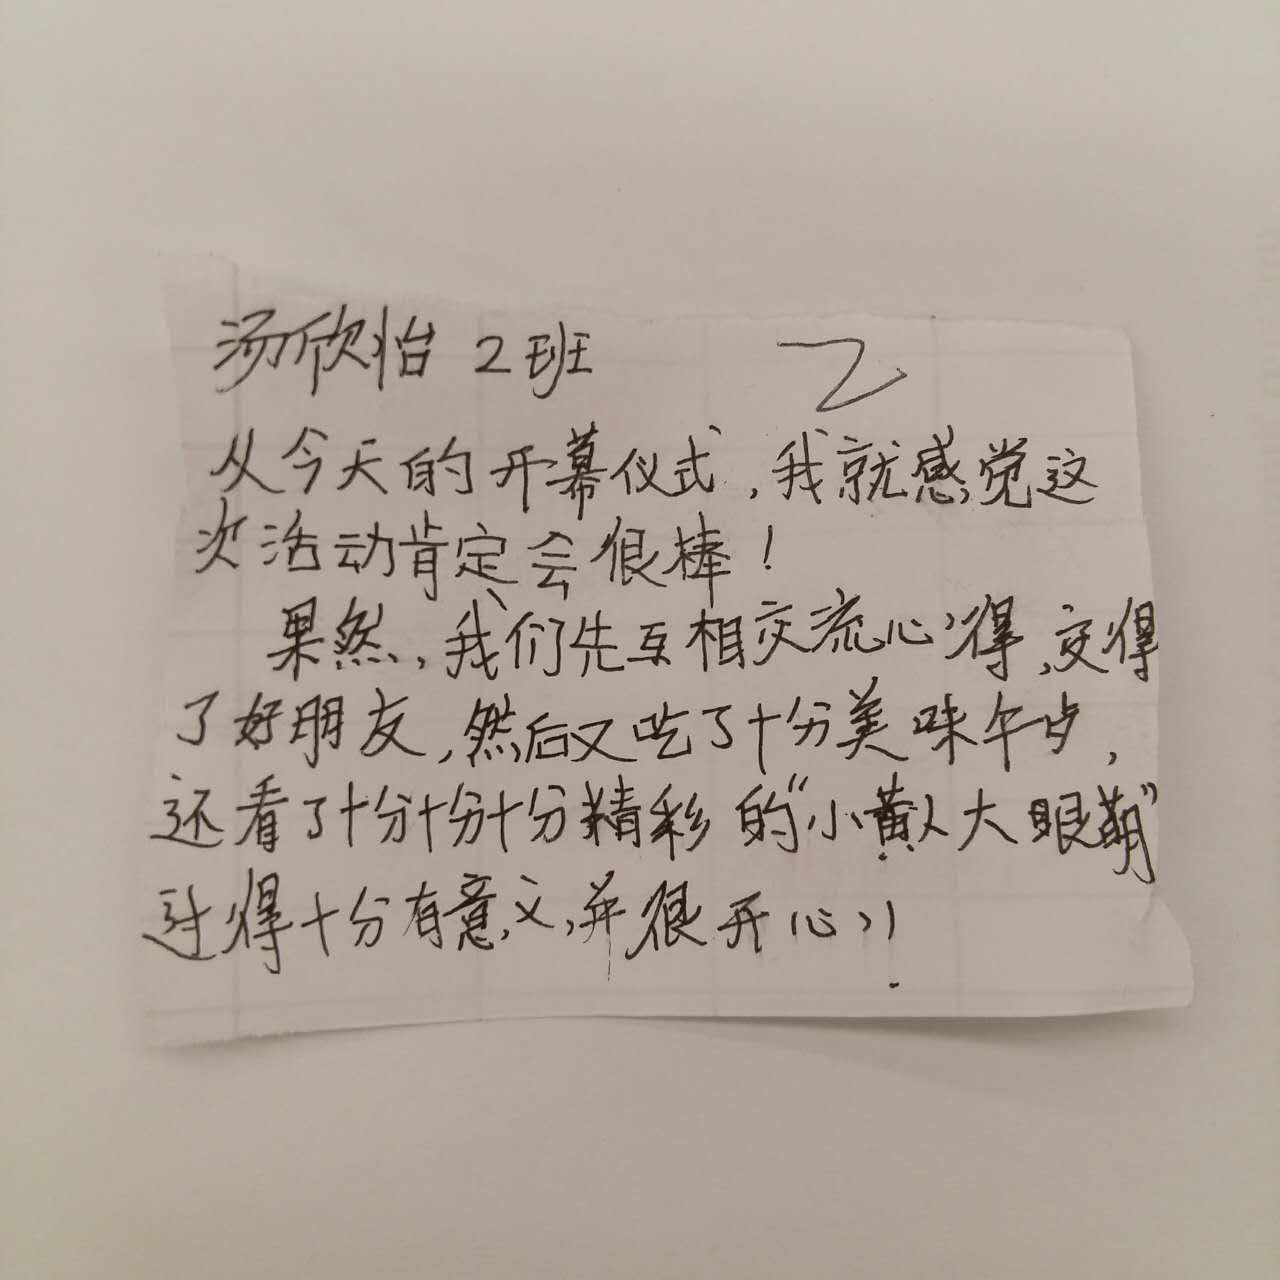 汤欣怡 2班 2
从今天的开幕仪式,我就感觉这
次活动肯定会很棒!
果然,我们先互相交流心得,交得
了好朋友,然后又吃了十分美味午
还看了十分十分十分精彩的“小黄人大眼萌”
过得十分有意义,并很开心!